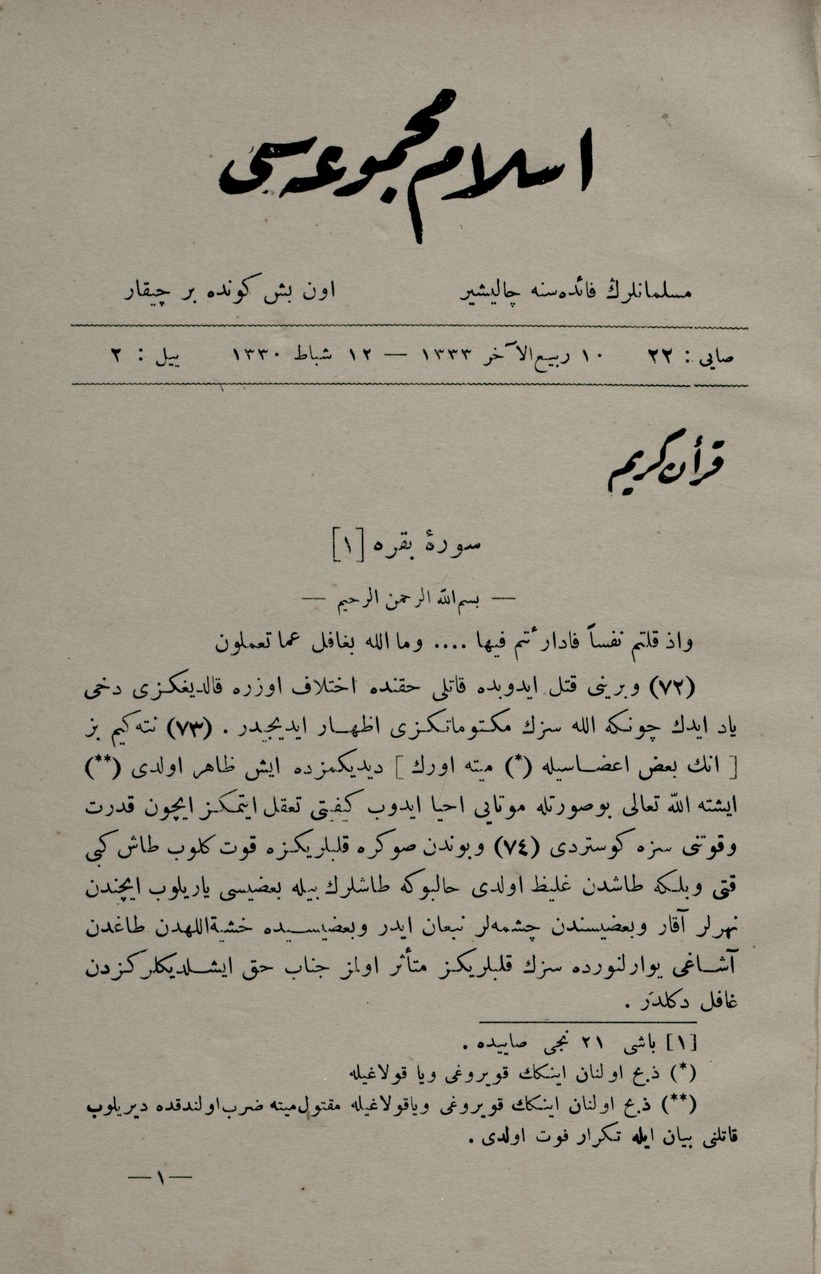 اسلام مجموعه سی
مسلمانلرڭ فائده‌سنه چالیشیر اون بش كونده بر چیقار
صایی : ٢٢ ١٠ ربیع‌الآخر ١٣٣٣ — ١٢ شباط ١٣٣٠ ییل : ٢
قرأن كریم
سورهٔ بقره [١]
— بسم‌الله الرحمن الرحیم —
واذ قلتم نفساً فادارٔتم فیها .... وما الله بغافل عما تعملون
(٧٢) وبرینی قتل ایدوبده قاتلی حقنده اختلاف اوزره قالدیغكزی دخی
یاد ایدك چونكه الله سزك مكتوماتكزی اظهار ایدیجیدر . (٧٣) نته‌كیم بز
[ انك بعض اعضاسیله (*) میته اورك ] دیدیكمزده ایش ظاهر اولدی (**)
ایشته الله تعالی بوصورتله موتایی احیا ایدوب كیفیتی تعقل ایتمكز ایچون قدرت
وقوتنی سزه كوستردی (٧٤) وبوندن صوكره قلبلریكزه قوت كلوب طاش كبی
قتی وبلكه طاشدن غلیظ اولدی حالبوكه طاشلرك بیله بعضیسی یاریلوب ایچندن
نهرلر آقار وبعضیسندن چشمه‌لر نبعان ایدر وبعضیسیده خشیةاللهدن طاغدن
آشاغی یوارلنورده سزك قلبلریكز متأثر اولمز جناب حق ایشلدیكلركزدن
غافل دكلدر .
[١] باشی ٢١ نجی صاییده .
(*) ذبح اولنان اینكك قویروغی ویا قولاغیله
(**) ذبح اولنان اینكك قویروغی ویاقولاغیله مقتول‌میته ضرب‌اولندقده دیریلوب
قاتلنی بیان ایله تكرار فوت اولدی .
—١—